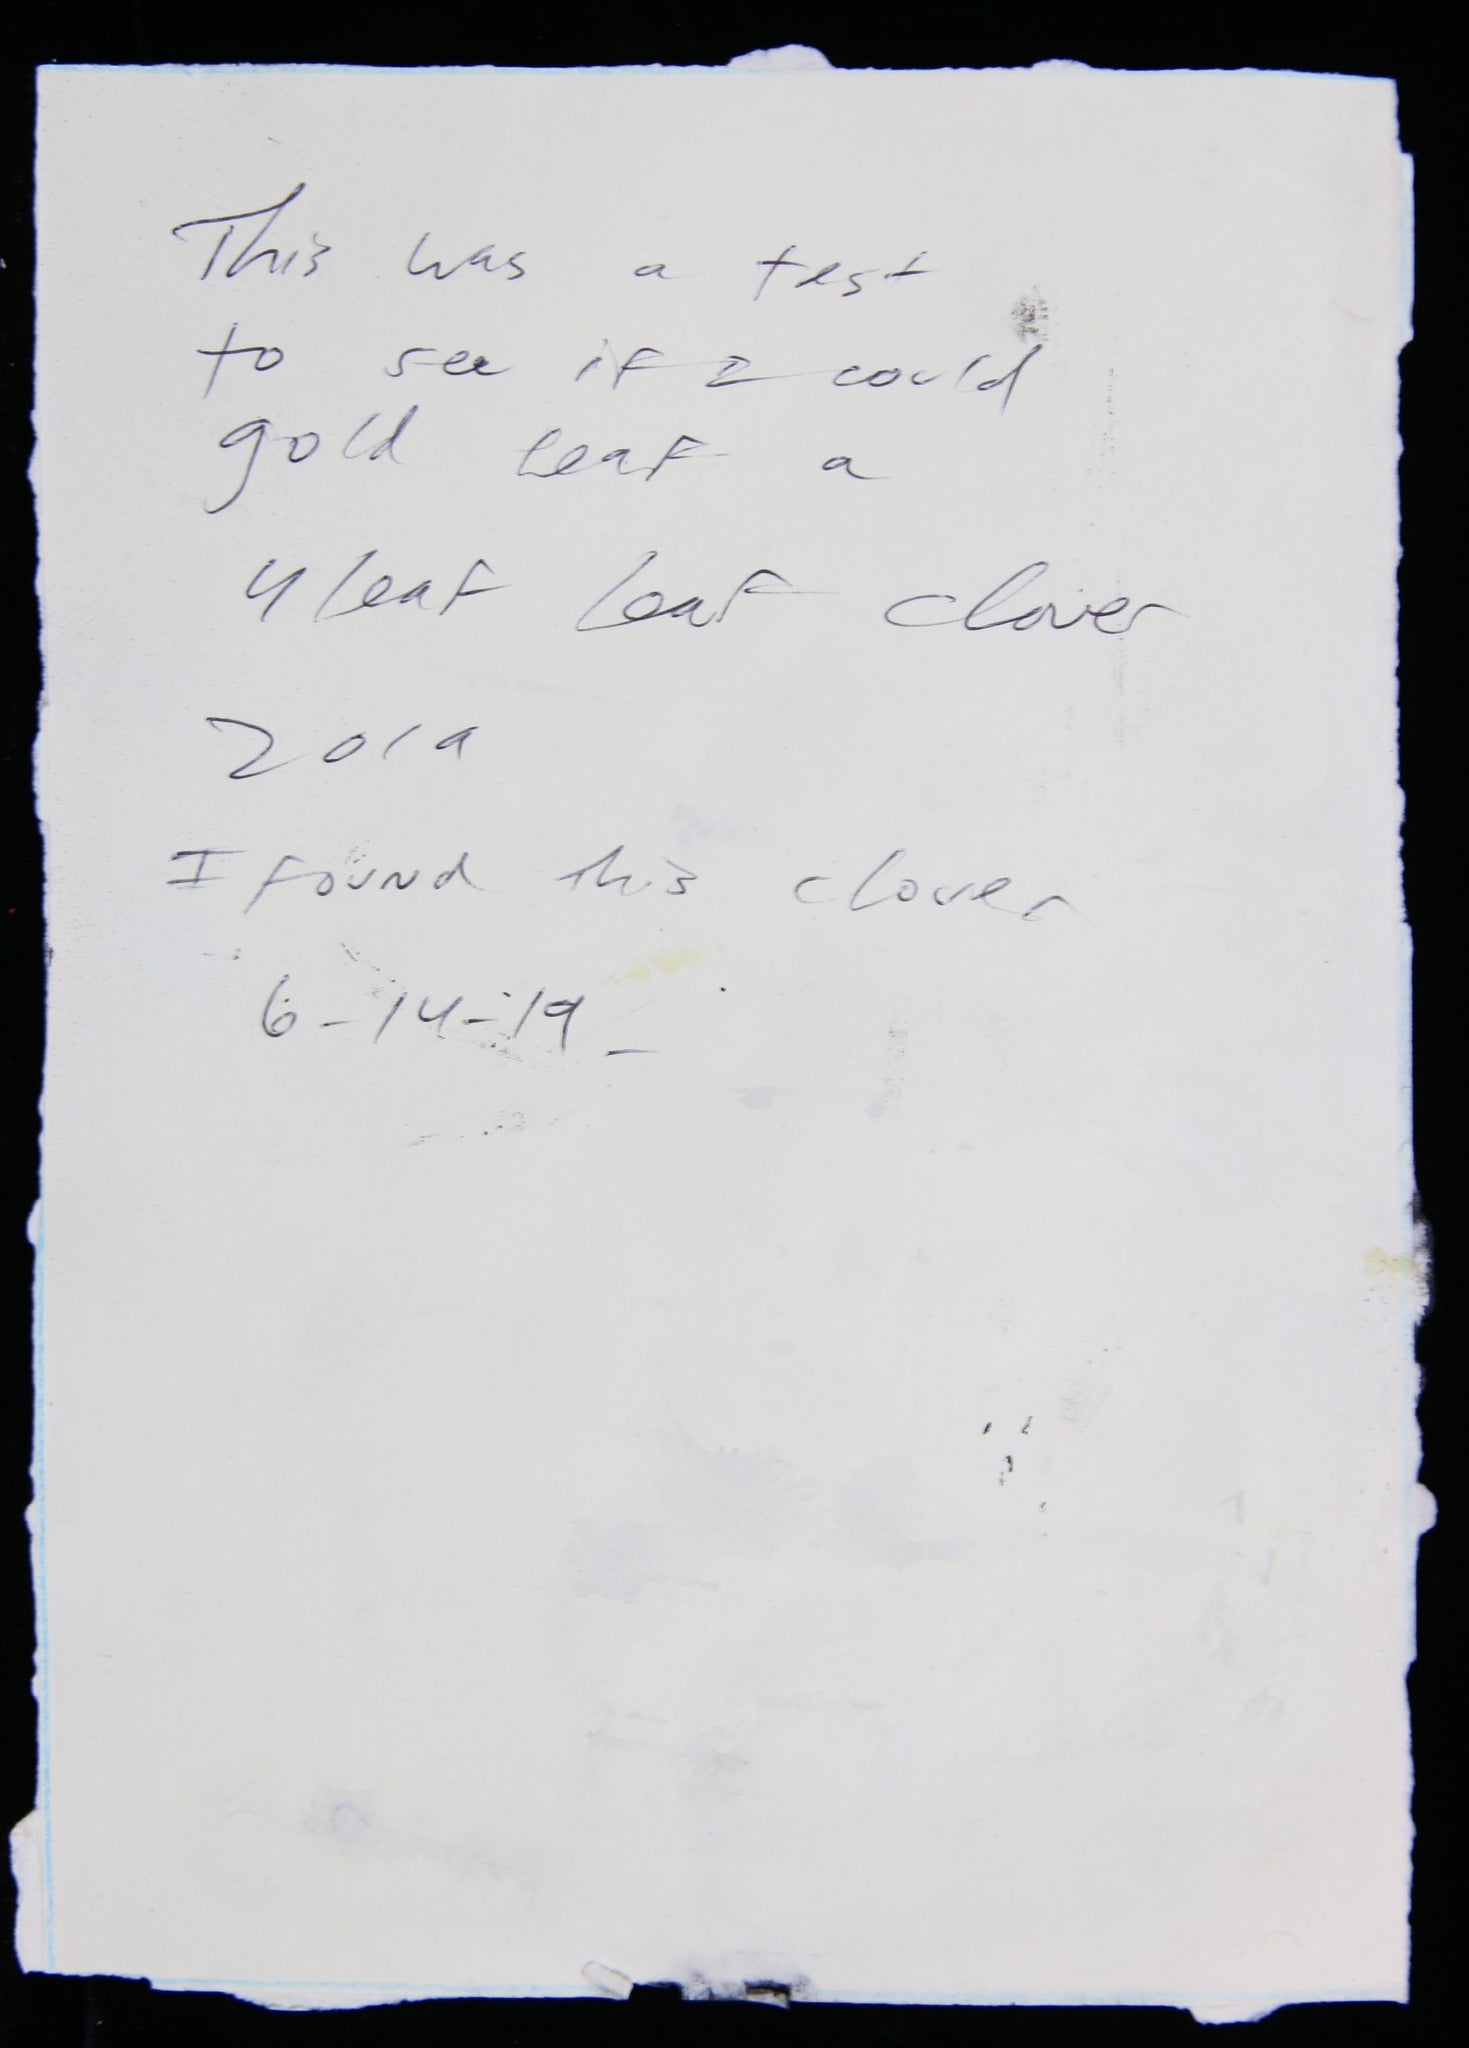 This was a test
to see if I could
gold leaf a
4 leaf leaf clover
2019
I found this clover
6-14-19_